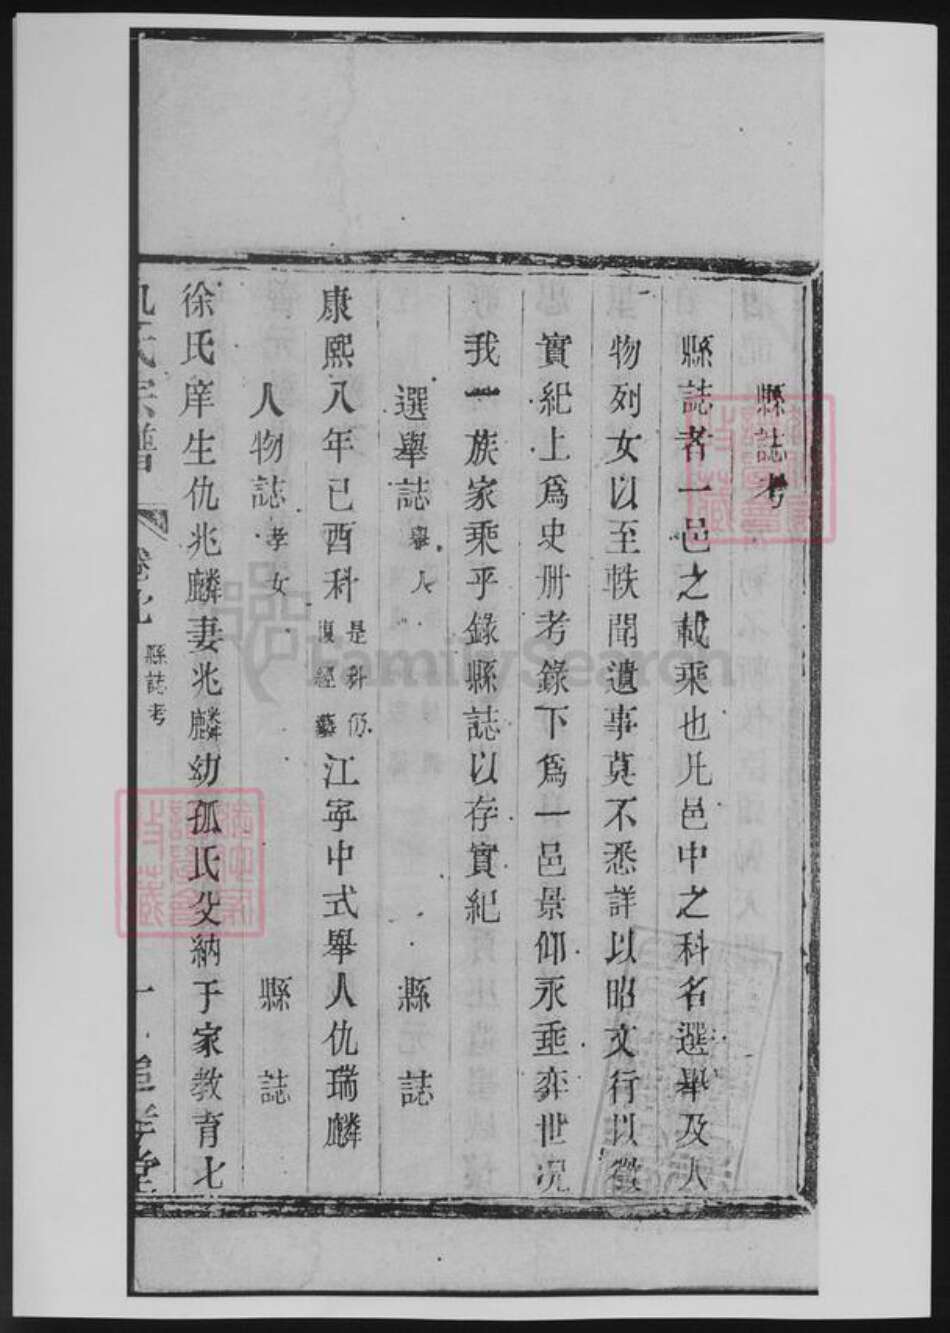 縣誌考
縣誌者一邑之載乘也凡邑中之科名選舉及人
物列女以至軼聞遺事莫不悉詳以昭文行以徵
實紀上爲史册考錄下爲一邑景仰永垂奕世况
我一族家乘乎錄縣誌以存實紀
選舉誌 舉人 縣誌
康熙八年已酉科 是科仍復經藝 江寧中式舉人仇瑞麟
人物誌 孝女 縣誌
徐氏庠生仇兆麟妻兆麟幼孤氏父納于家教育七
仇氏宗譜 卷之 縣誌考 一 追孝堂
FamilySearch